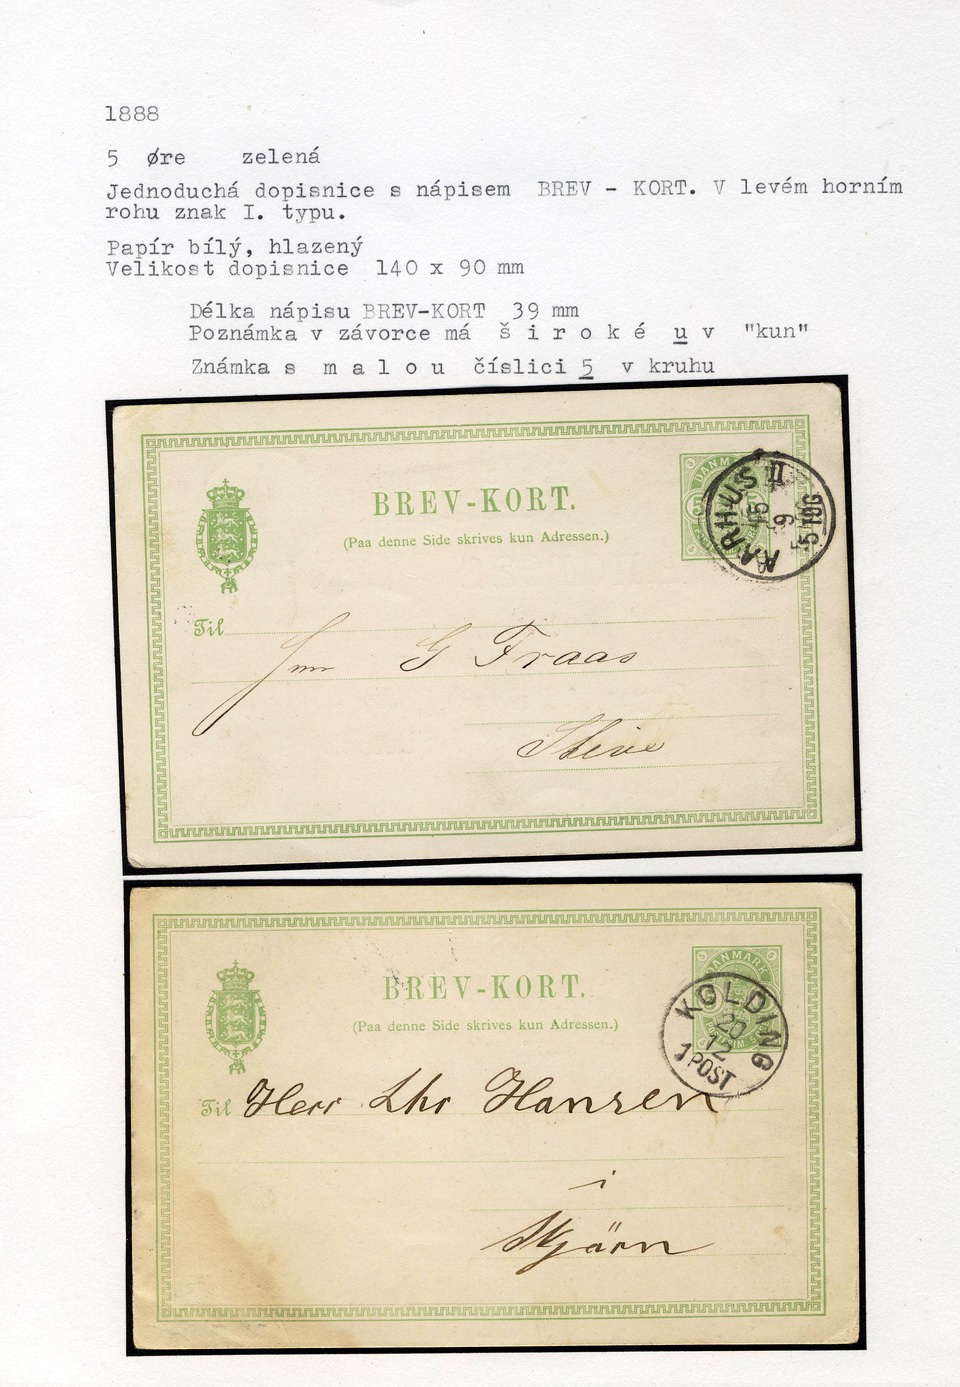 1888
5 øre zelená
Jednoduchá dopisnice s nápisem BREV - KORT. V levém horním
rohu znak I. typu.
Papír bílý, hlazený
Velikost dopisnice 140 x 90 mm
Délka nápisu BREV-KORT 39 mm
Poznámka v závorce má š i r o k é u v "kun"
Známka s m a l o u číslici 5 v kruhu
DANM
AARHUS II
5 TOG
BREV-KORT.
(Paa denne Side skrives kun Adressen.)
Til
G Fraas
DANMARK
KOLDING
20
12
1 POST
BREV-KORT.
(Paa denne Side skrives kun Adressen.)
Til Herr Hansen
i
Skjärn